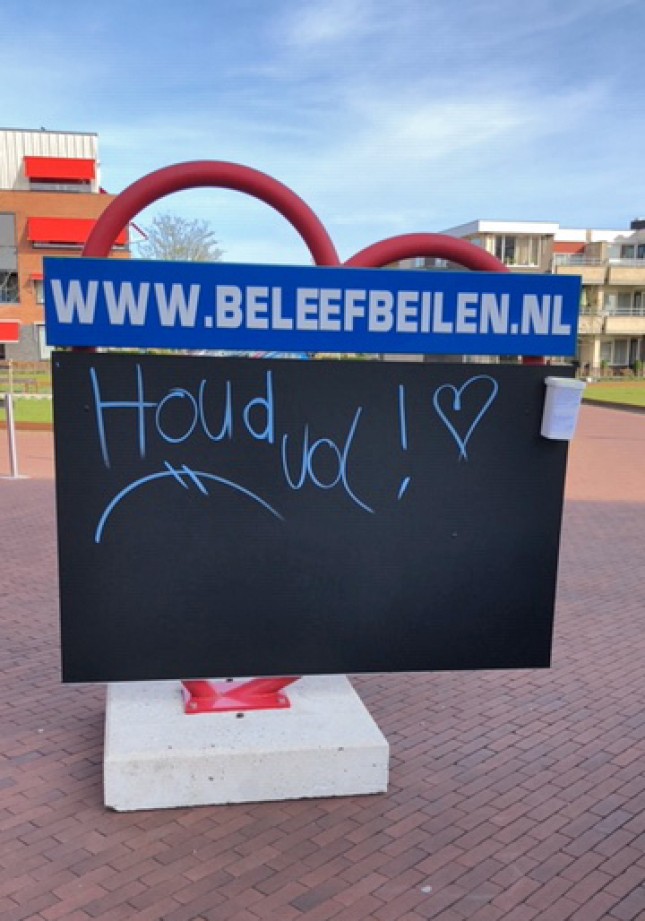 WWW.BELEEFBEILEN.NL
Houd vol! ♡